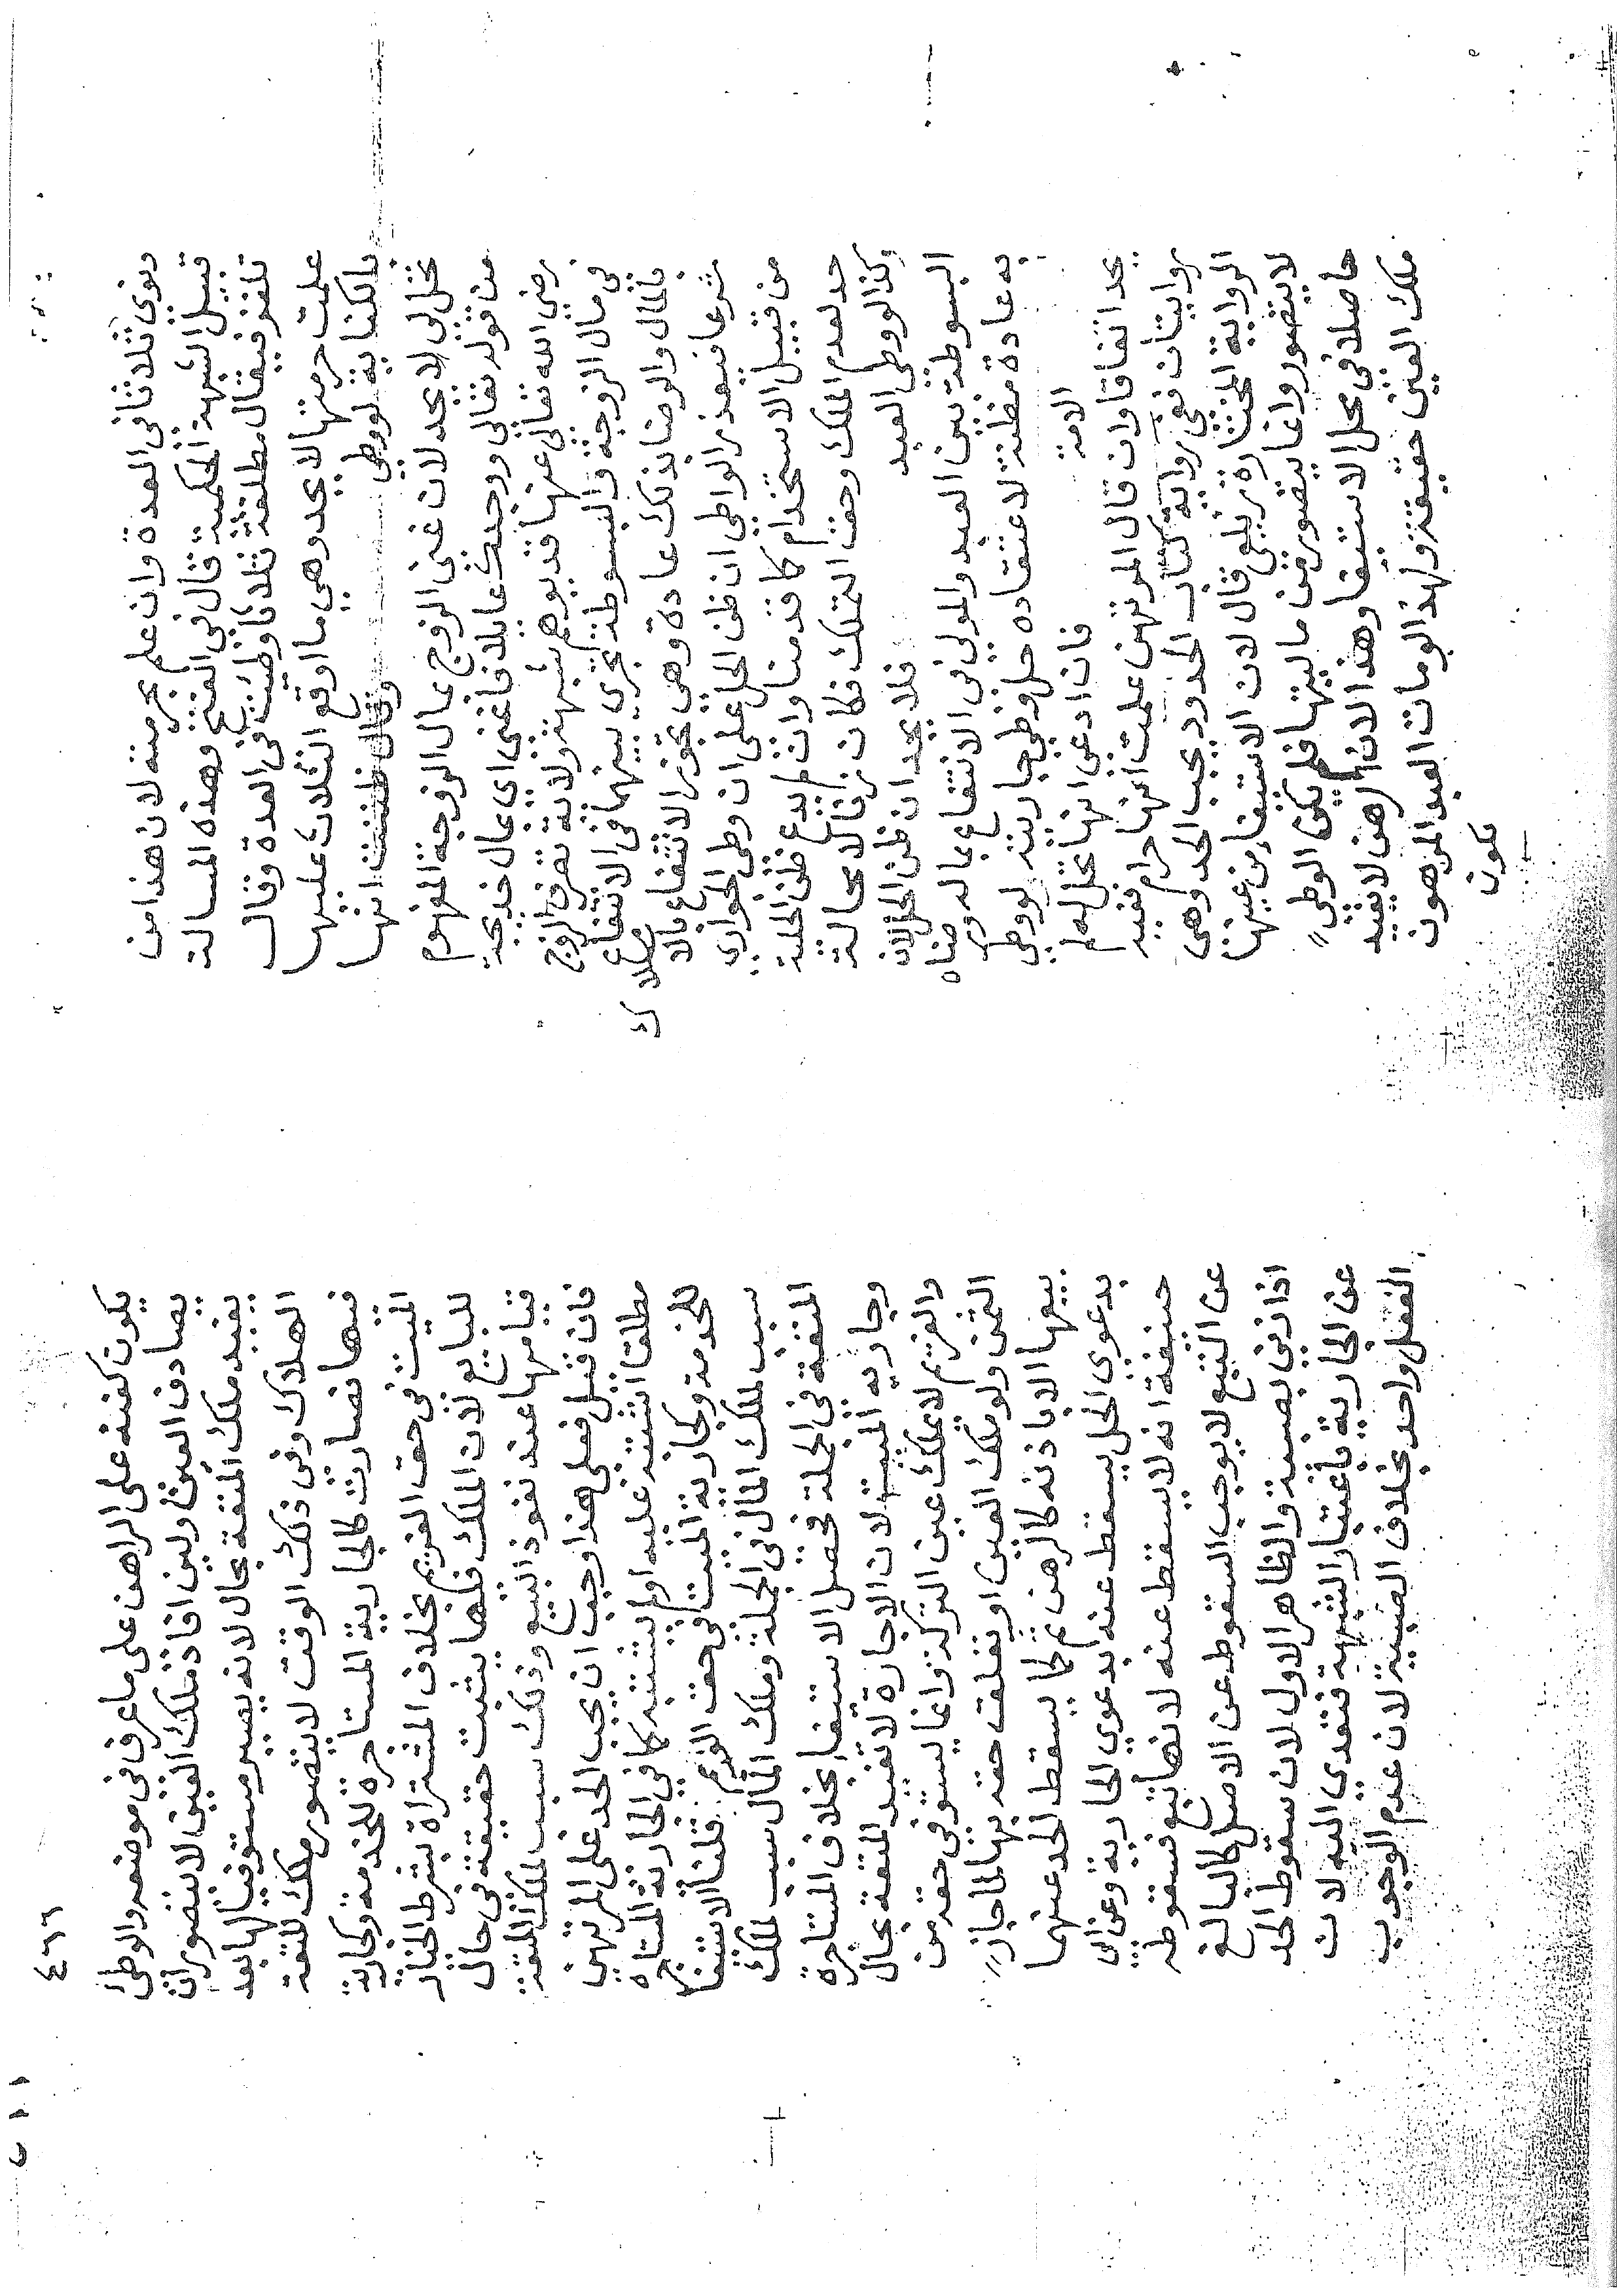 ونوى ثلاثا في العدة وان علم بحرمته لان هذا من
قبيل الشبهة الحكمية قال في الفتح وهذه المسالة
تلغز فيقال مطلقة ثلاثا وطئت في العدة وقال
علمت حرمتها لا يحد وهي ما اوقع الثلاث عليها
بالكناية لووطي وقال ظننت انها
تحل لي لا يحد لان غنى الزوج بمال الزوجة المفهوم
من قوله تعالى ووجدك عايلا فاغنى اي بمال خديجة
رضي الله تعالى عنها قد يوهم شبهة ولانه تصرف الزوج
في مال الزوجة والبسوطة تجري بينهما في الانتفاع
بالمال والرضا بذلك عادة وهي تجوز الانتفاع بالمال
شرعا فيعذر الواطي ان ظن الحل على ان وطي الجواري
من قبيل الاستخدام كما قدمنا وان لم يدع ظن الحل
حد لعدم الملك وحق التملك فكان زنا لا محالة
كذا لووطي العبد فلا يحد ان ظن الحل لان
البسوطة بين العبد والمولى في الانتفاع بماله ورضاه
به عادة مظنة لاعتقاده حل وطي جاريته لووطي
الامة فان ادعى انها تحل له لم
يحد اتفاقا وان قال المرتهن علمت انها حرام ففيه
روايتان ففي رواية كتاب الحدود يجب الحد وهي
الرواية المختارة زيلعي قال لان الاستيفاء من عينها
لا يتصور وانما يتصور من ماليتها فلم يكن الوطي
حاصلا في محل الاستيفا وهذا لان الرهن لا يفيد
ملك العين حقيقة ولهذا لومات العبد المرهون
يكون
٤٦٦
يكون كفنه على الراهن على ما عرف في موضعه والوطئ
يصادف العين وليس افادة ملك العين لا يتصور ان
يفيد ملك المتعة بحال لانه يصير مستوفيا لها بعد
الهلاك وفي ذلك الوقت لا يتصور ملك المتعة
فيها فصارت كالجارية المستاجرة للخدمة وكجارية
الميت في حق الغريم بخلاف المشتراة بشرط الخيار
للبايع لان الملك فيها يثبت حقيقة في حال
قيامها عند نفوذ البيع وذلك سبب لملك المتعة
فان قيل فعلى هذا وجب ان يجب الحد على المرتهن
مطلقا اشتبه عليه او لم يشتبه كما في الجارية المستاجرة
للخدمة وكجارية الميت في حق الغريم قلنا الاستيفا
سبب لملك المال في الجملة وملك المال سبب لملك
المتعة في الجملة فحصل الاستيفاء بخلاف المستاجرة
وجارية الميت لان الاجارة لا تفيد المتعة بحال
والغريم لا يملك عين التركة وانما يستوفي حقه من
الثمن ولو ملك العين او تعلق حقه بها لما جاز
بيعها الا باذنه كالرهن ثم كما يسقط الحد عنهما
بدعوى الحل يسقط عنه بدعوى الجارية وعن ابي
حنيفة انه لا يسقط عنه لانها تبع فسقوطه
عن التبع لا يوجب السقوط عن الاصل كالبالغ
اذا زنى بصبية والظاهر الاول لان سقوط الحد
عن الجارية باعتبار الشبهة فتعدى اليه لان
الفعل واحد بخلاف الصبية لان عدم الوجوب